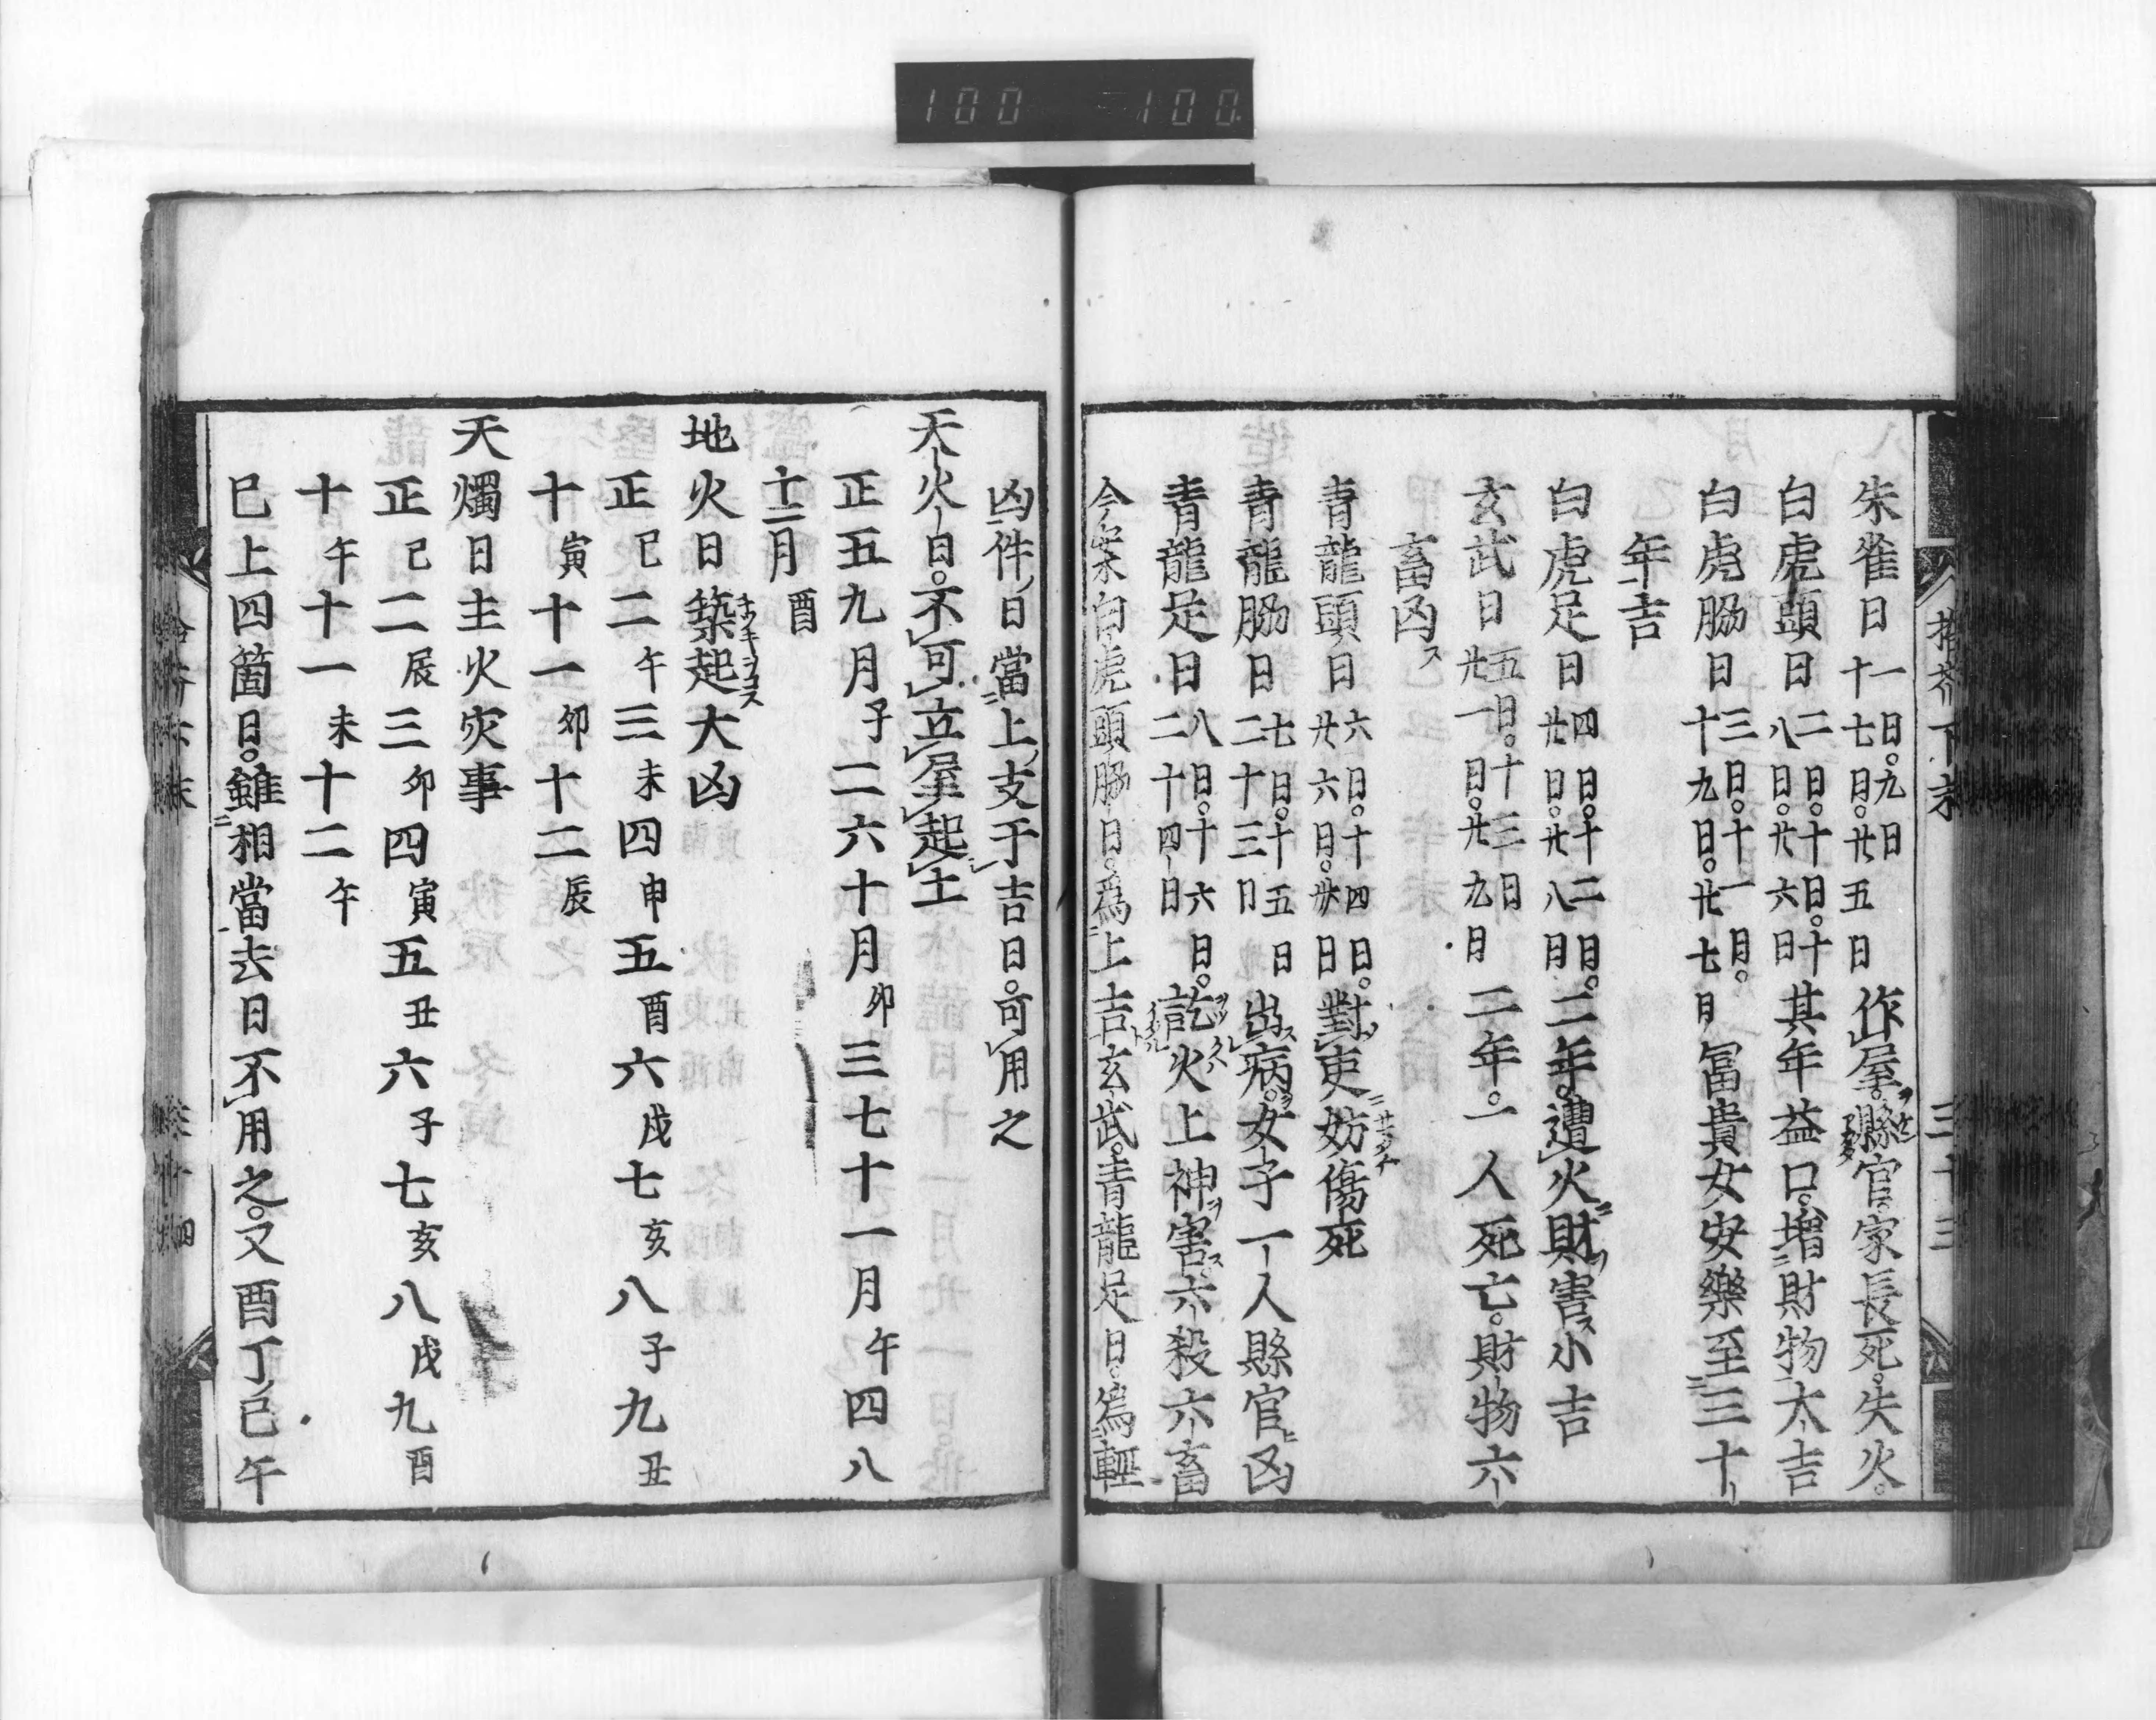 100 100
朱雀日一日。九日十七日。廿五日作屋。縣官。家長死。失火。
白虎頭日二日。十日。十八日。廿六日其年益口。增財物大吉
白虎脇日三日。十一日。十九日。廿七日冨貴女安樂至三十
年吉
白虎足日四日。十二日。廿日。廿八日二年。遭火財害小吉
玄武日五日。十三日廿一日。廿九日二年。一人死亡。財物六
畜凶
青龍頭日六日。十四日。廿六日。卅日對吏妨傷死
青龍脇日七日。十五日二十三日出病。女子一人縣官凶
青龍足日八日。十六日。二十四日訖火上神害。六殺六畜
今案白虎頭脇日。爲上吉玄武。青龍足日。爲輕
凶件日當上支干吉日。可用之
天火日。不可立屋起土
正五九月子二六十月卯三七十一月午四八
十二月酉
地火日築起大凶
正巳二午三未四申五酉六戌七亥八子九丑
十寅十一卯十二辰
天燭日主火灾事
正巳二辰三卯四寅五丑六子七亥八戌九酉
十午十一未十二午
巳上四箇日。雖相當去日不用之。又酉丁巳午